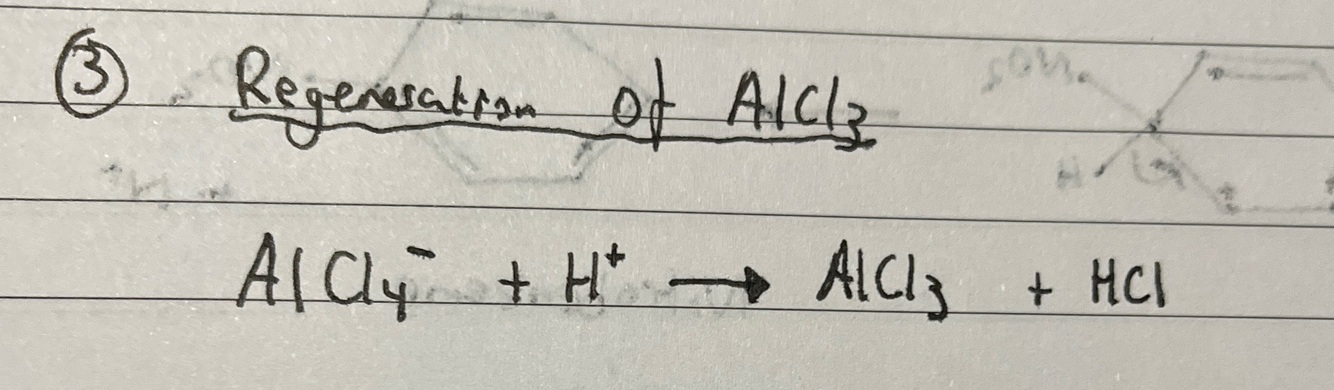 ③ Regeneration of AlCl₃
AlCl₄⁻ + H⁺ → AlCl₃ + HCl